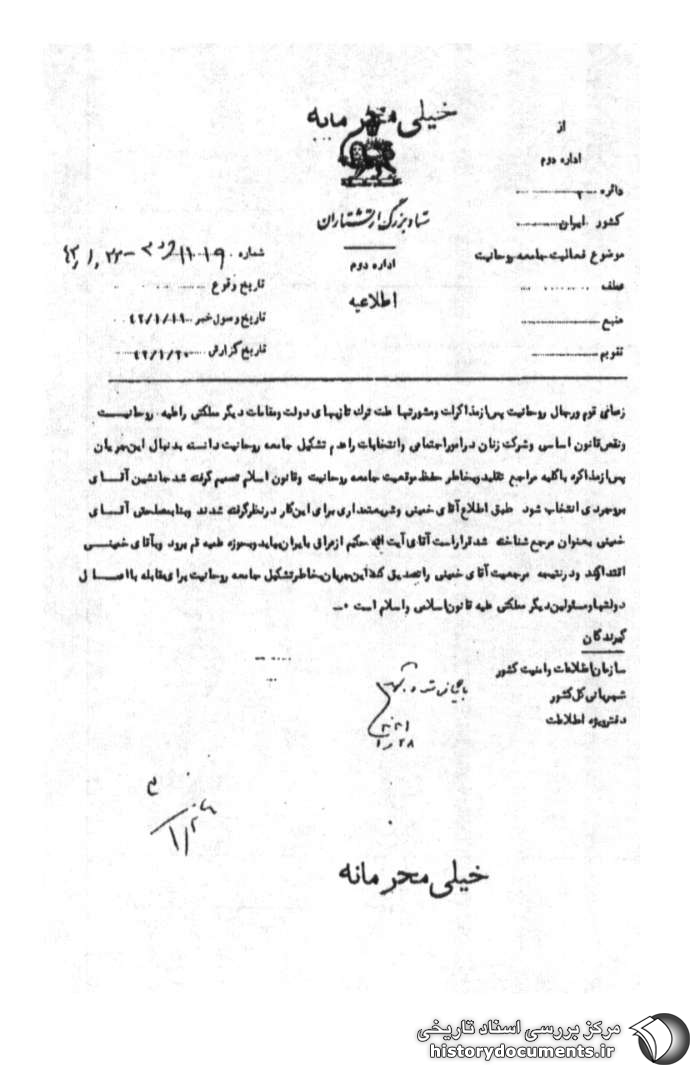 خیلی محرمانه
از
اداره دوم
دائره ۲
کشور ایران
موضوع فعالیت جامعه روحانیت
عطف
منبع
تقویم
ستاد بزرگ ارتشتاران
اداره دوم
اطلاعیه
شماره
تاریخ وقوع
تاریخ وصول خبر ۴۲/۱/۱۹
تاریخ گزارش ۴۲/۱/۲۰
زعمای قوم ورجال روحانیت پس از مذاکرات ومشورتها علت ترک تازیهای دولت ومقامات دیگر مملکتی راعلیه روحانیت
ونقض قانون اساسی وشرکت زنان در امور اجتماعی وانتخابات راعدم تشکیل جامعه روحانیت دانسته بدنبال این جریان
پس از مذاکره باکلیه مراجع تقلید وبخاطر حفظ موقعیت جامعه روحانیت وقانون اسلام تصمیم گرفته شد جانشین آقای
بروجردی انتخاب شود طبق اطلاع آقای خمینی وشریعتمداری برای این کار در نظر گرفته شدند وبنابمصلحتی آقای
خمینی بعنوان مرجع شناخته شد قرار است آقای آیت الله حکیم از عراق بایران بیاید وبحوزه علمیه قم برود وبآقای خمینی
اقتدا کند ودر نتیجه مرجعیت آقای خمینی راتصدیق کند این جریان بخاطر تشکیل جامعه روحانیت برای مقابله با اعمال
دولتها ومسئولین دیگر مملکتی علیه قانون اساسی واسلام است ۰ــ
گیرندگان
سازمان اطلاعات وامنیت کشور
شهربانی کل کشور
دفتر ویژه اطلاعات
بایگانی شود
خیلی محرمانه
مرکز بررسی اسناد تاریخی
historydocuments.ir